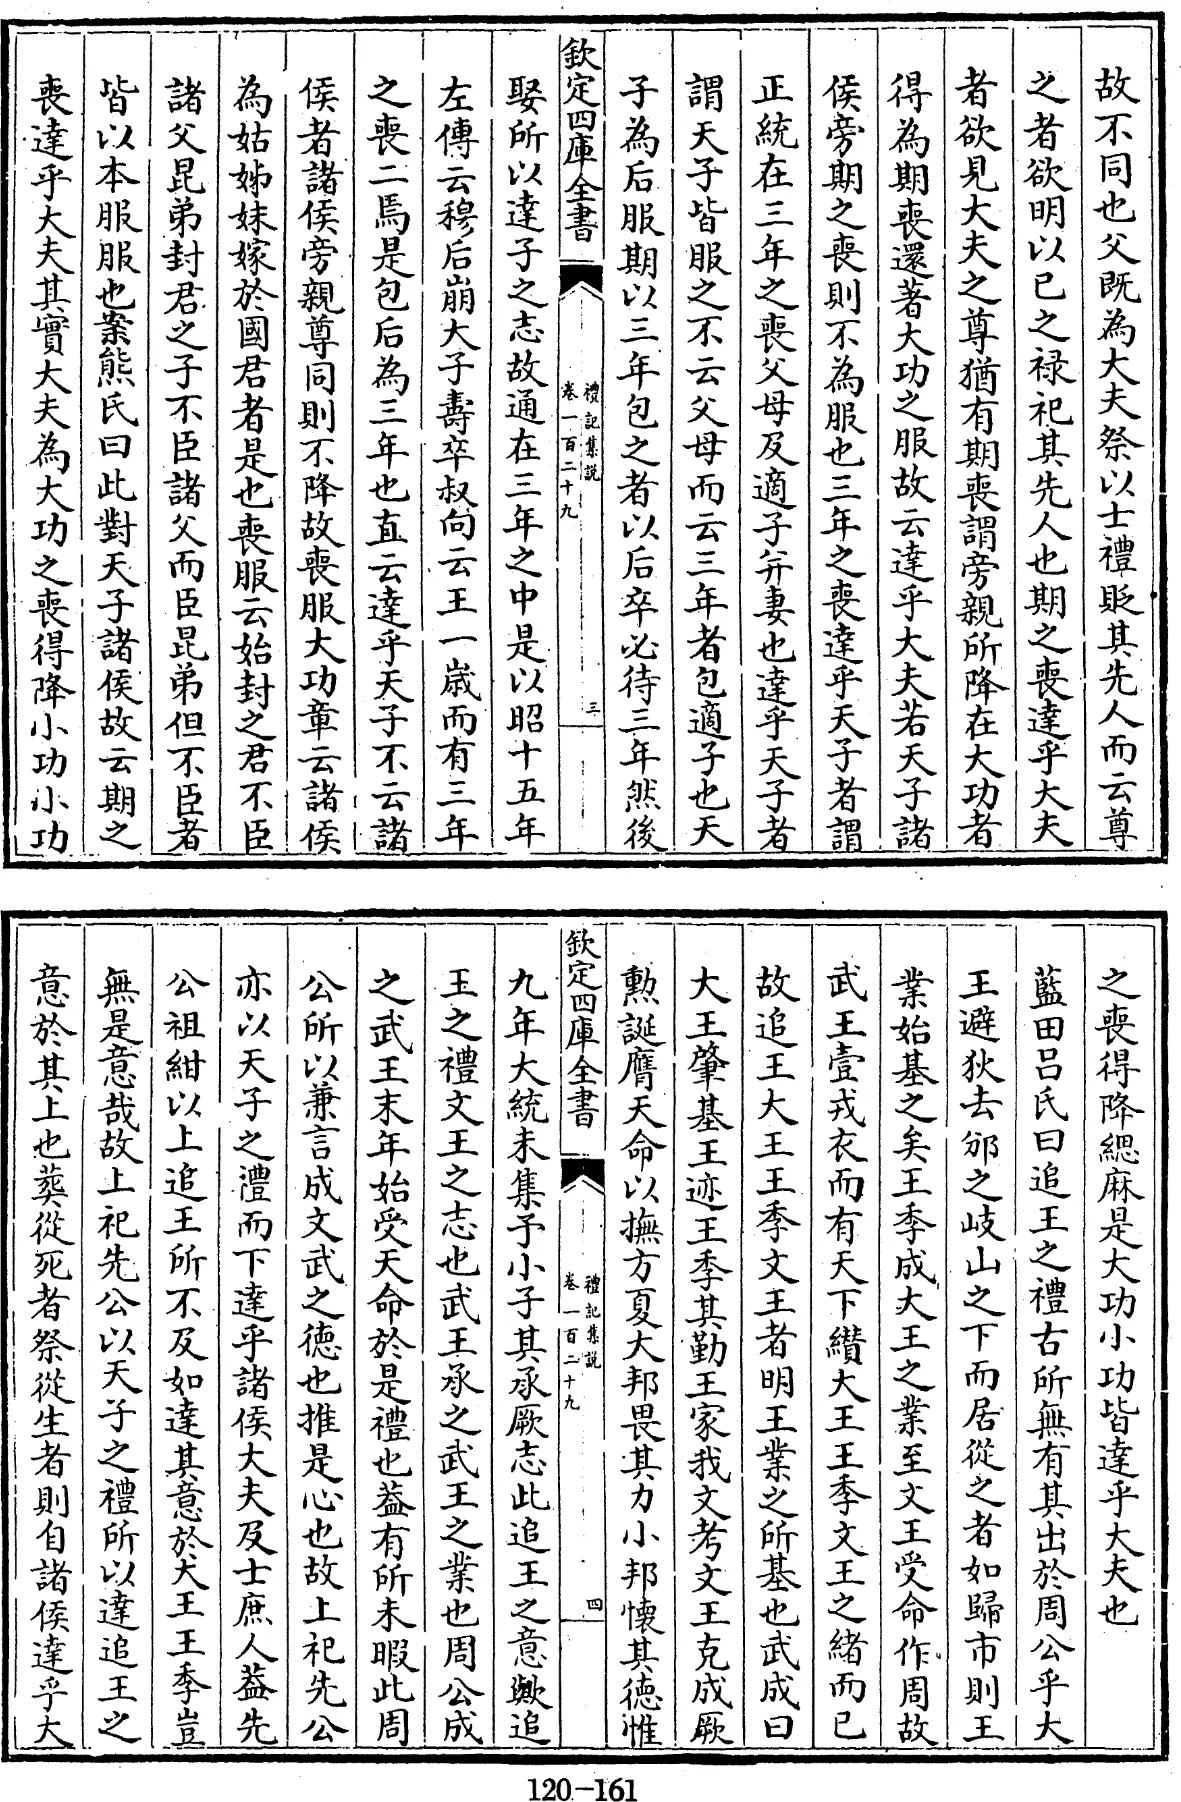 故不同也父既為大夫祭以士禮貶其先人而云尊
之者欲明以己之禄祀其先人也期之喪達乎大夫
者欲見大夫之尊猶有期喪謂旁親所降在大功者
得為期喪還著大功之服故云達乎大夫若天子諸
侯旁期之喪則不為服也三年之喪達乎天子者謂
正統在三年之喪父母及適子并妻也達乎天子者
謂天子皆服之不云父母而云三年者包適子也天
子為后服期以三年包之者以后卒必待三年然後
欽定四庫全書
禮記集説
卷一百二十九
三
娶所以達子之志故通在三年之中是以昭十五年
左傳云穆后崩大子壽卒叔向云王一歳而有三年
之喪二焉是包后為三年也直云達乎天子不云諸
侯者諸侯旁親尊同則不降故喪服大功章云諸侯
為姑姊妹嫁於國君者是也喪服云始封之君不臣
諸父昆弟封君之子不臣諸父而臣昆弟但不臣者
皆以本服服也案熊氏曰此對天子諸侯故云期之
喪達乎大夫其實大夫為大功之喪得降小功小功
之喪得降緦麻是大功小功皆達乎大夫也
藍田呂氏曰追王之禮古所無有其出於周公乎大
王避狄去邠之岐山之下而居從之者如歸市則王
業始基之矣王季成大王之業至文王受命作周故
武王壹戎衣而有天下纘大王王季文王之緒而已
故追王大王王季文王者明王業之所基也武成曰
大王肇基王迹王季其勤王家我文考文王克成厥
勲誕膺天命以撫方夏大邦畏其力小邦懷其德惟
欽定四庫全書
禮記集説
卷一百二十九
四
九年大統未集予小子其承厥志此追王之意歟追
王之禮文王之志也武王承之武王之業也周公成
之武王末年始受天命於是禮也葢有所未暇此周
公所以兼言成文武之德也推是心也故上祀先公
亦以天子之禮而下達乎諸侯大夫及士庶人葢先
公祖紺以上追王所不及如達其意於大王王季豈
無是意哉故上祀先公以天子之禮所以達追王之
意於其上也葬從死者祭從生者則自諸侯達乎大
120-161